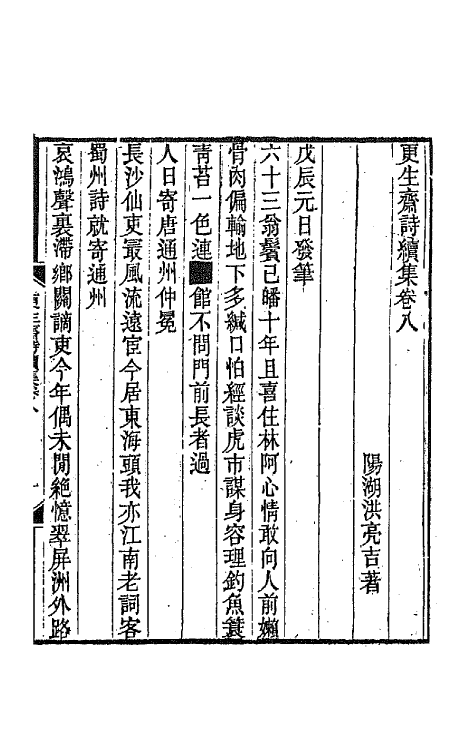 更生齋詩續集卷八
陽湖洪亮吉著
戊辰元日發筆
六十三翁鬢已皤十年且喜住林阿心情敢向人前嬾
骨肉偏輸地下多緘口怕經談虎市謀身容理釣魚蓑
青苔一色連■館不問門前長者過
人日寄唐通州仲冕
長沙仙吏最風流遠宦今居東海頭我亦江南老詞客
蜀州詩就寄通州
哀鴻聲裏滯鄉關謫吏今年偶未閒絕憶翠屏洲外路